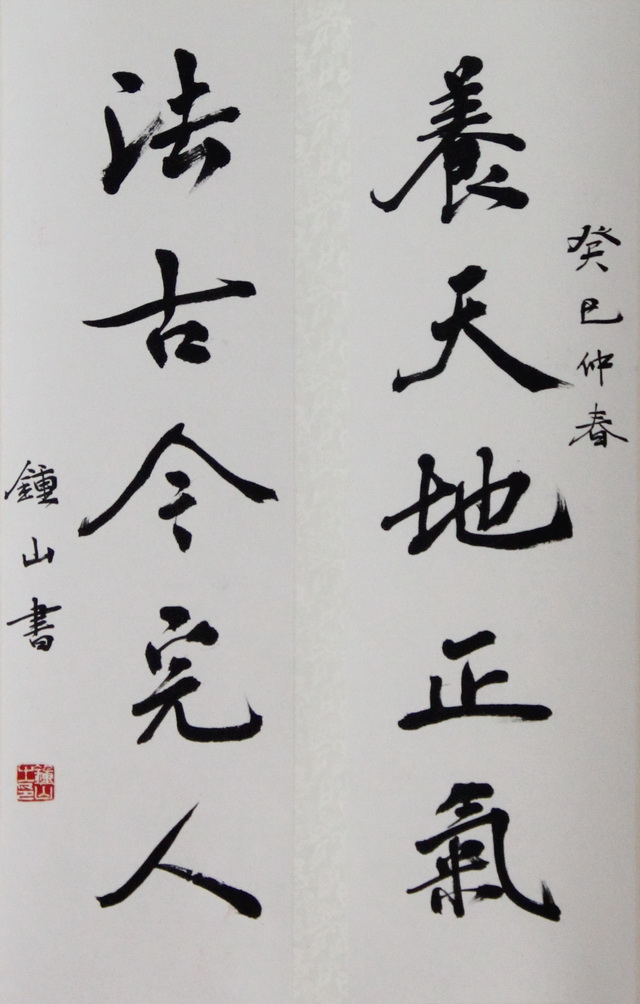 癸巳仲春
養天地正氣
法古今完人
鍾山書